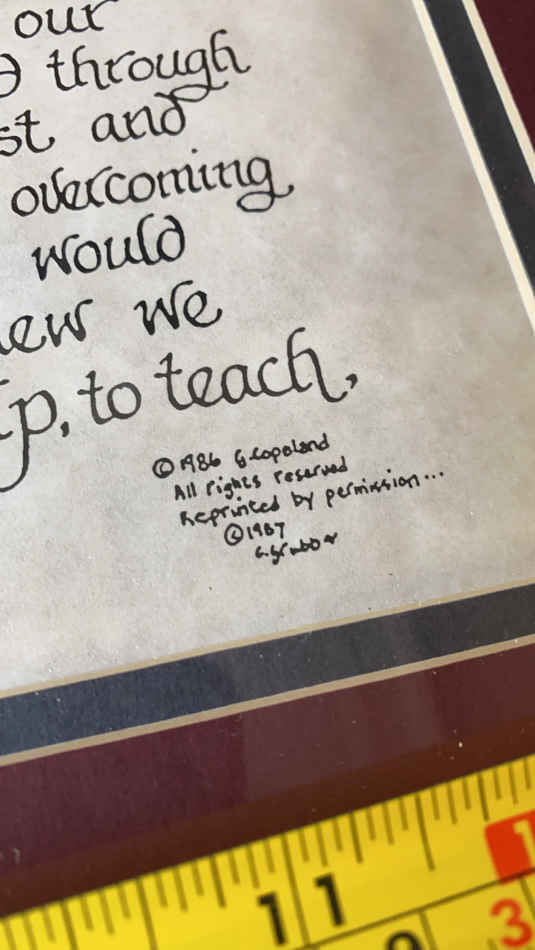 our
through
and
overcoming
would
we
to teach,
© 1986 G. Copeland
All rights reserved
Reprinted by permission...
© 1987
11
3